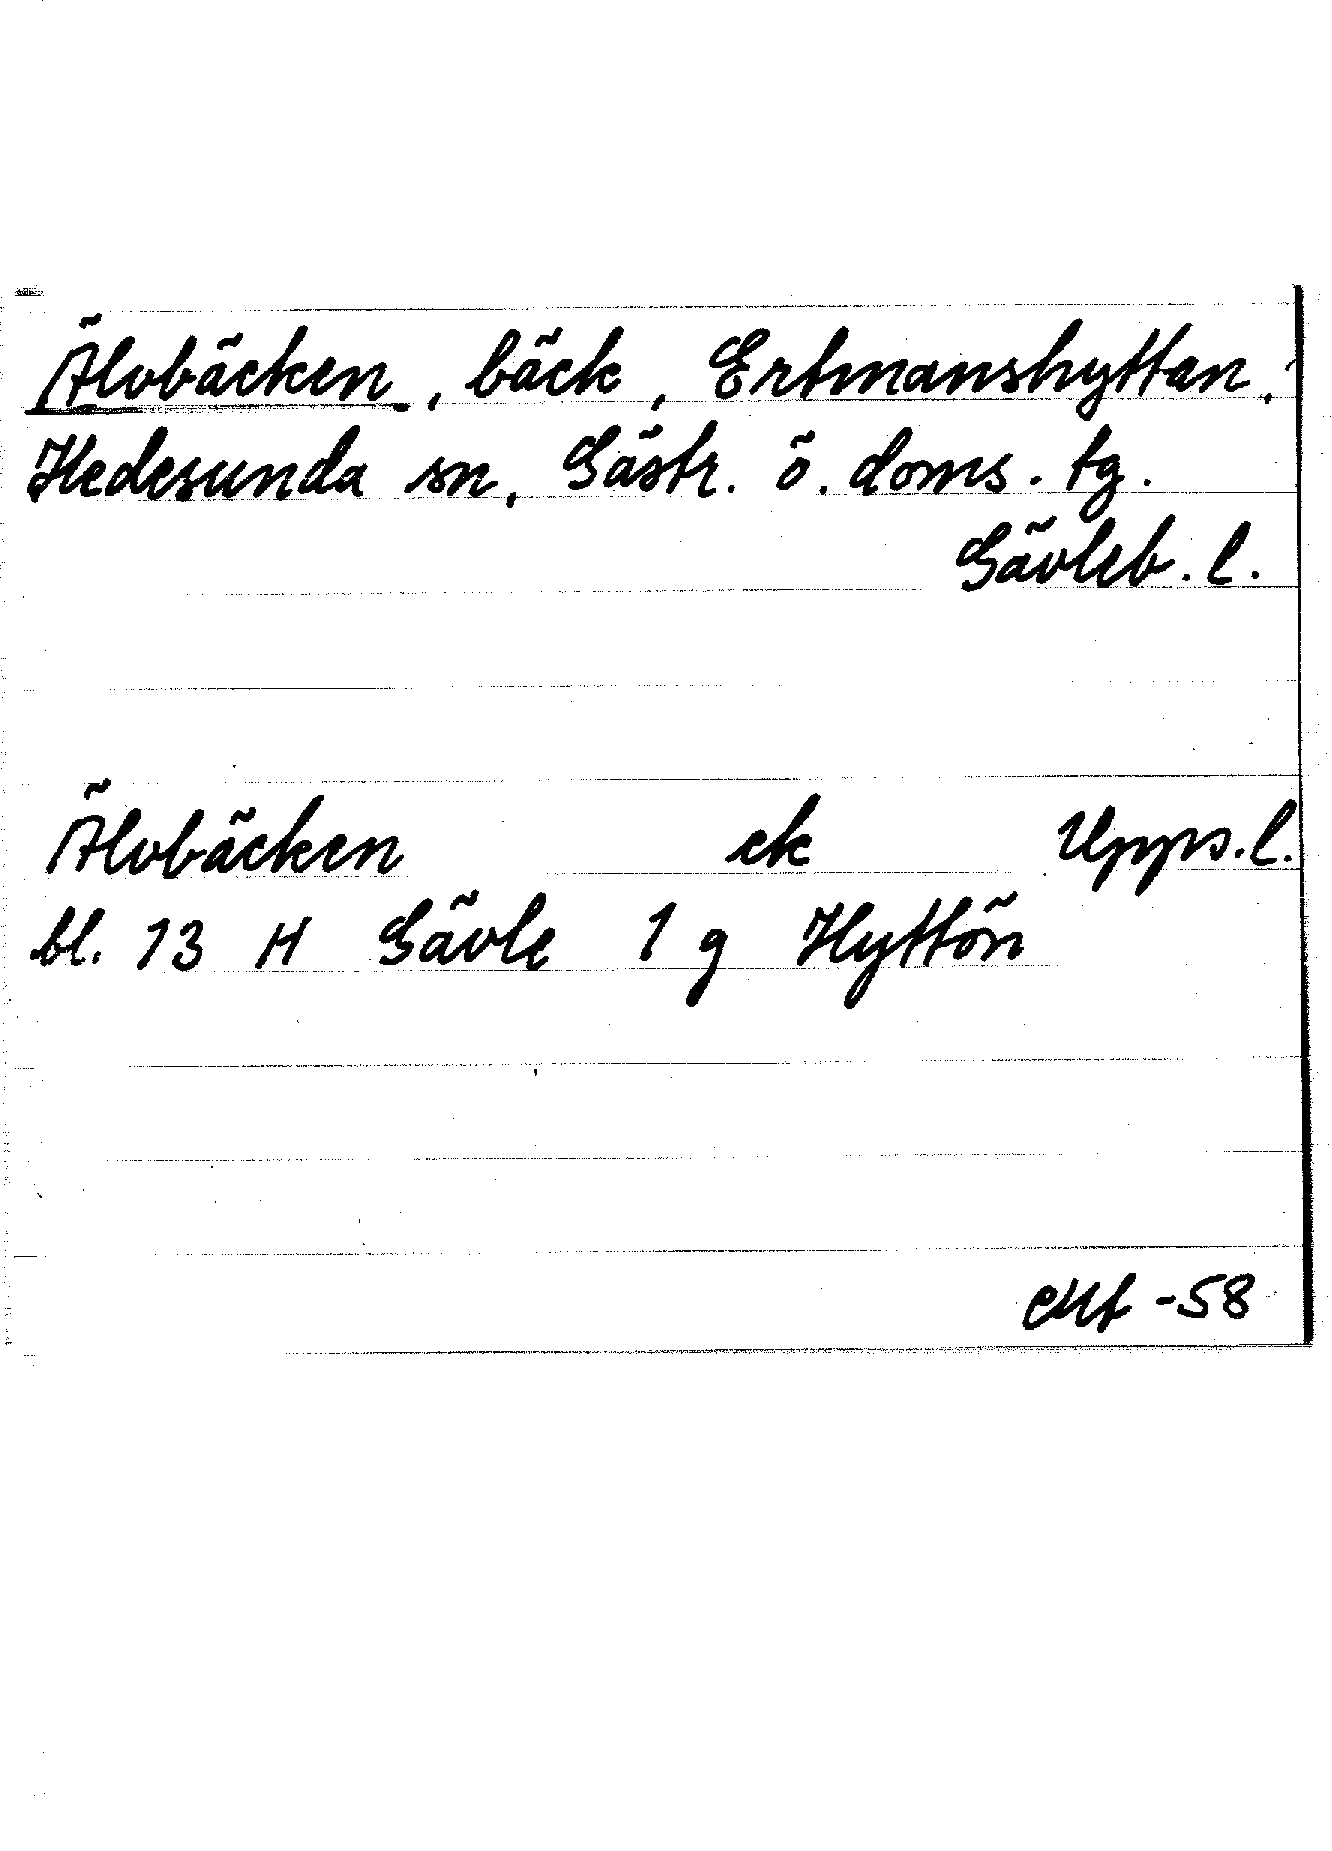 Älvbäcken, bäck, Ertmanshyttan,
Hedesunda sn, Gästr. ö. doms. tg.
Gävleb. l.
Älvbäcken ek Upps. l.
bl. 13 H Gävle 1 g Hyttön
-58